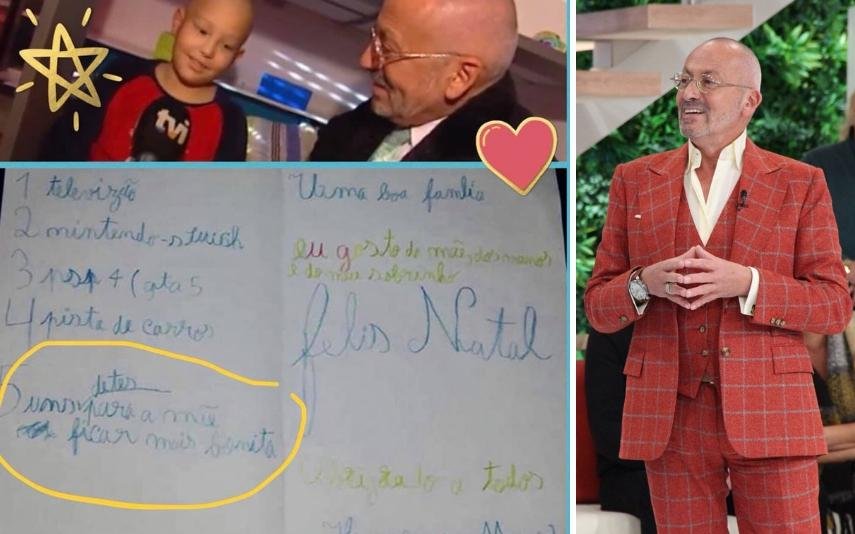 tvi
1 televizão
2 nintendo-stwich
3 psp 4 (gta 5
4 pista de carros
5 uns para a mãe
ficar mais bonita
Uzma boa familia
eu gosto da mãe, dos manos
e do meu sobrinho
felis Natal
Obrigado a todos